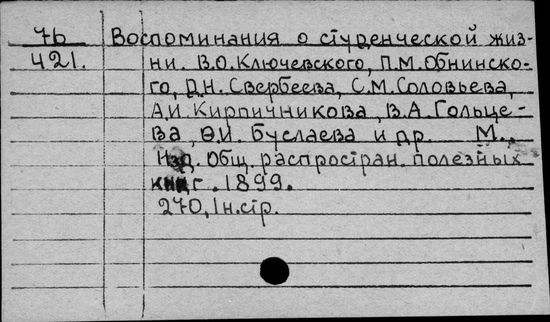 76 Воспоминания о студенческой жиз-
421. ни. В.О.Ключевского, П.М.Обнинско-
го, Д.Н.Свербеева, С.М.Соловьева,
А.И.Кирпичникова, В.А.Гольце-
ва, Ѳ.И. Буслаева и др. М.,
Изд. Общ. распростран. полезных
книг. 1899.
270, 1н.стр.